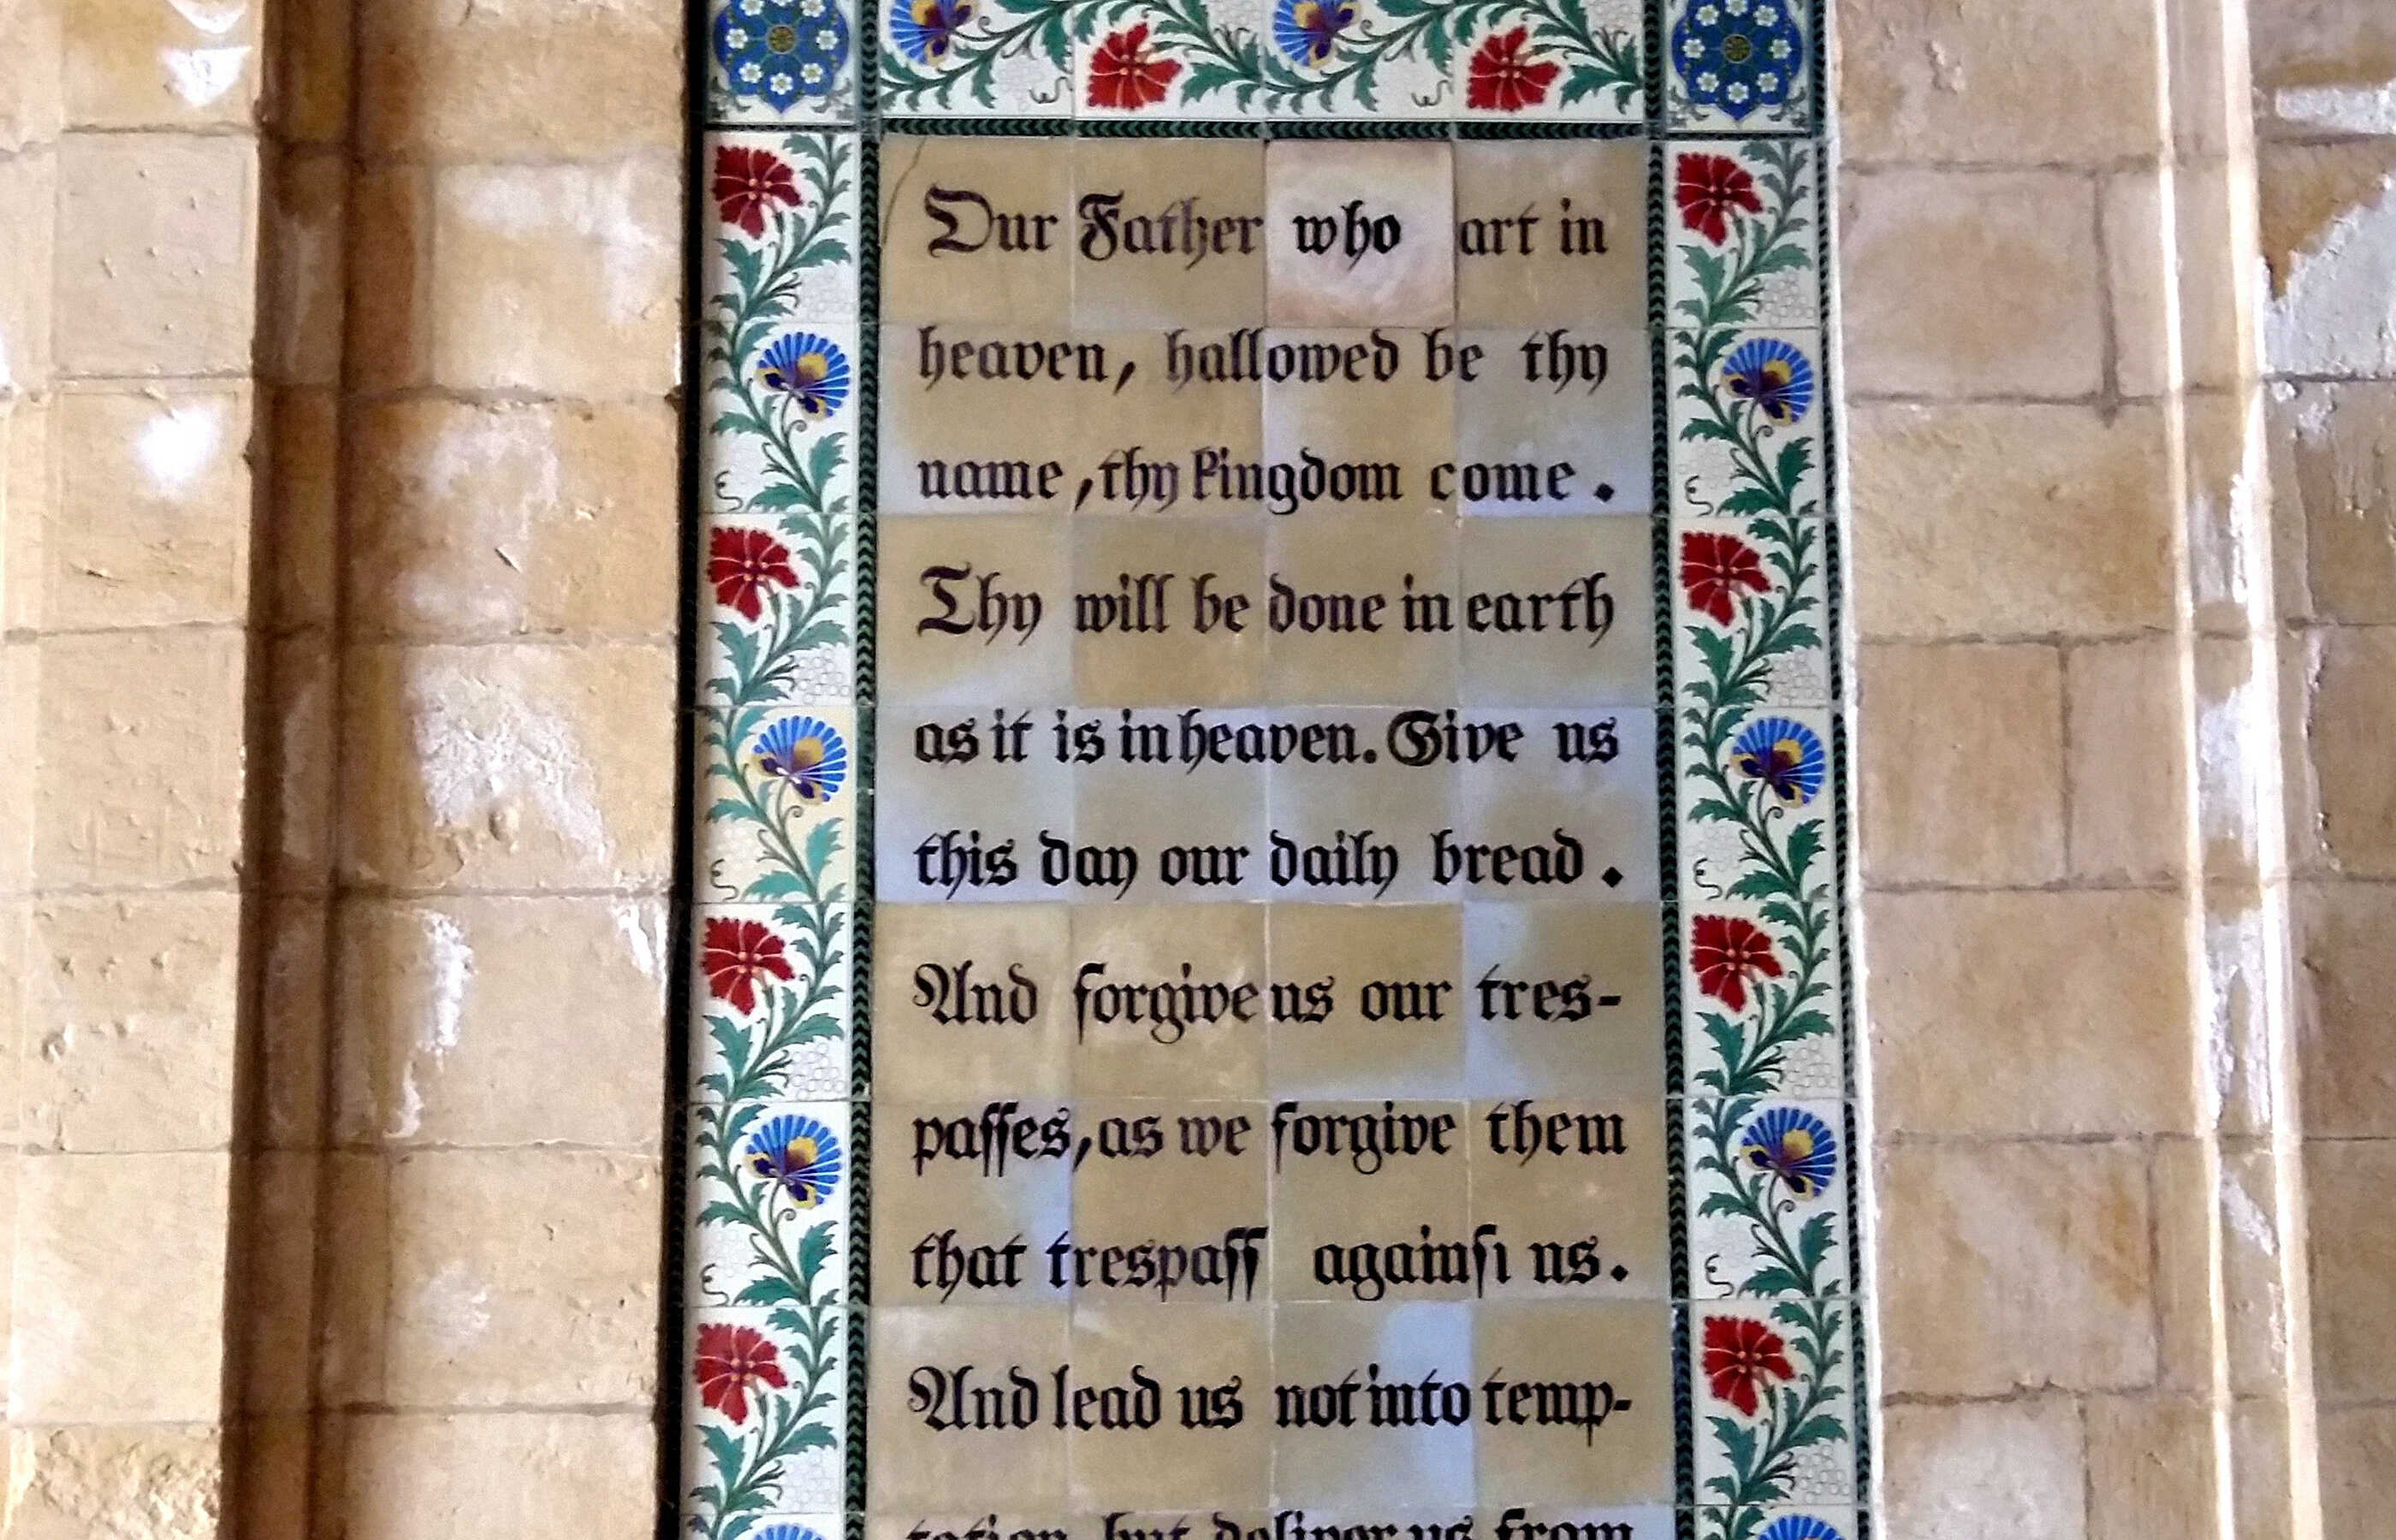 Our Father who art in
heaven, hallowed be thy
name, thy kingdom come.
Thy will be done in earth
as it is in heaven. Give us
this day our daily bread.
And forgive us our tres-
paſſes, as we forgive them
that trespaſſ againſt us.
And lead us not into temp-
tation but deliver us from